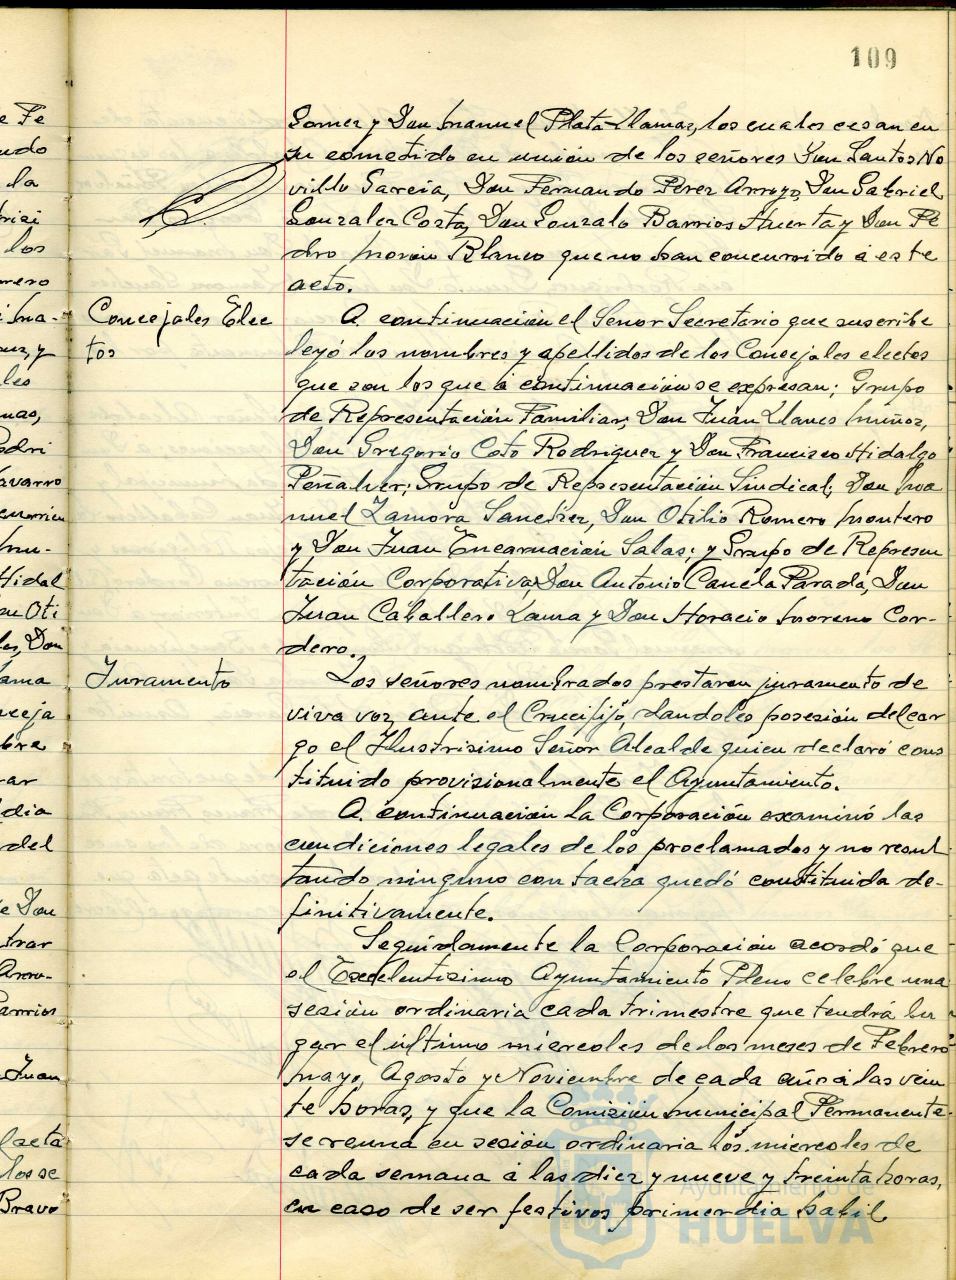 109
Gomez y Don Manuel Plata Llamas, los cuales cesan en
su cometido en unión de los señores Don Santos No
villo García, Don Fernando Pérez Arroyo, Don Gabriel
Gonzalez Costa, Don Gonzalo Barrios Huerta y Don Pe
dro Morón Blanco que no han concurrido á este
acto.
Concejales Elec
tos
A continuación el Señor Secretario que suscribe
leyó los nombres y apellidos de los Concejales electos
que son los que á continuación se expresan; Grupo
de Representación Familiar, Don Juan Llanes Muñoz,
Don Gregorio Coto Rodriguez y Don Francisco Hidalgo
Peñalver; Grupo de Representación Sindical, Don Ma
nuel Zamora Sanchez, Don Otilio Romero Montero
y Don Juan Encarnación Salas; y Grupo de Represen
tación Corporativa, Don Antonio Canela Parada, Don
Juan Caballero Launa y Don Horacio Moreno Cor-
dero.
Juramento
Los señores nombrados prestaron juramento de
viva voz, ante el Crucifijo, dandoles posesión del car
go el Ilustrisimo Señor Alcalde quien declaró cons
tituido provisionalmente el Ayuntamiento.
A continuación la Corporación examinó las
condiciones legales de los proclamados y no resul
tando ninguno con tacha quedó constituida de-
finitivamente.
Seguidamente la Corporación acordó que
el Excelentisimo Ayuntamiento Pleno celebre una
sesión ordinaria cada trimestre que tendrá lu
gar el último miercoles de los meses de Febrero
Mayo, Agosto y Noviembre de cada año á las vein
te horas, y que la Comisión Municipal Permanente
se reuna en sesión ordinaria los miercoles de
cada semana á las diez y nueve y treinta horas,
en caso de ser festivos primer dia habil
Ayuntamiento de
HUELVA